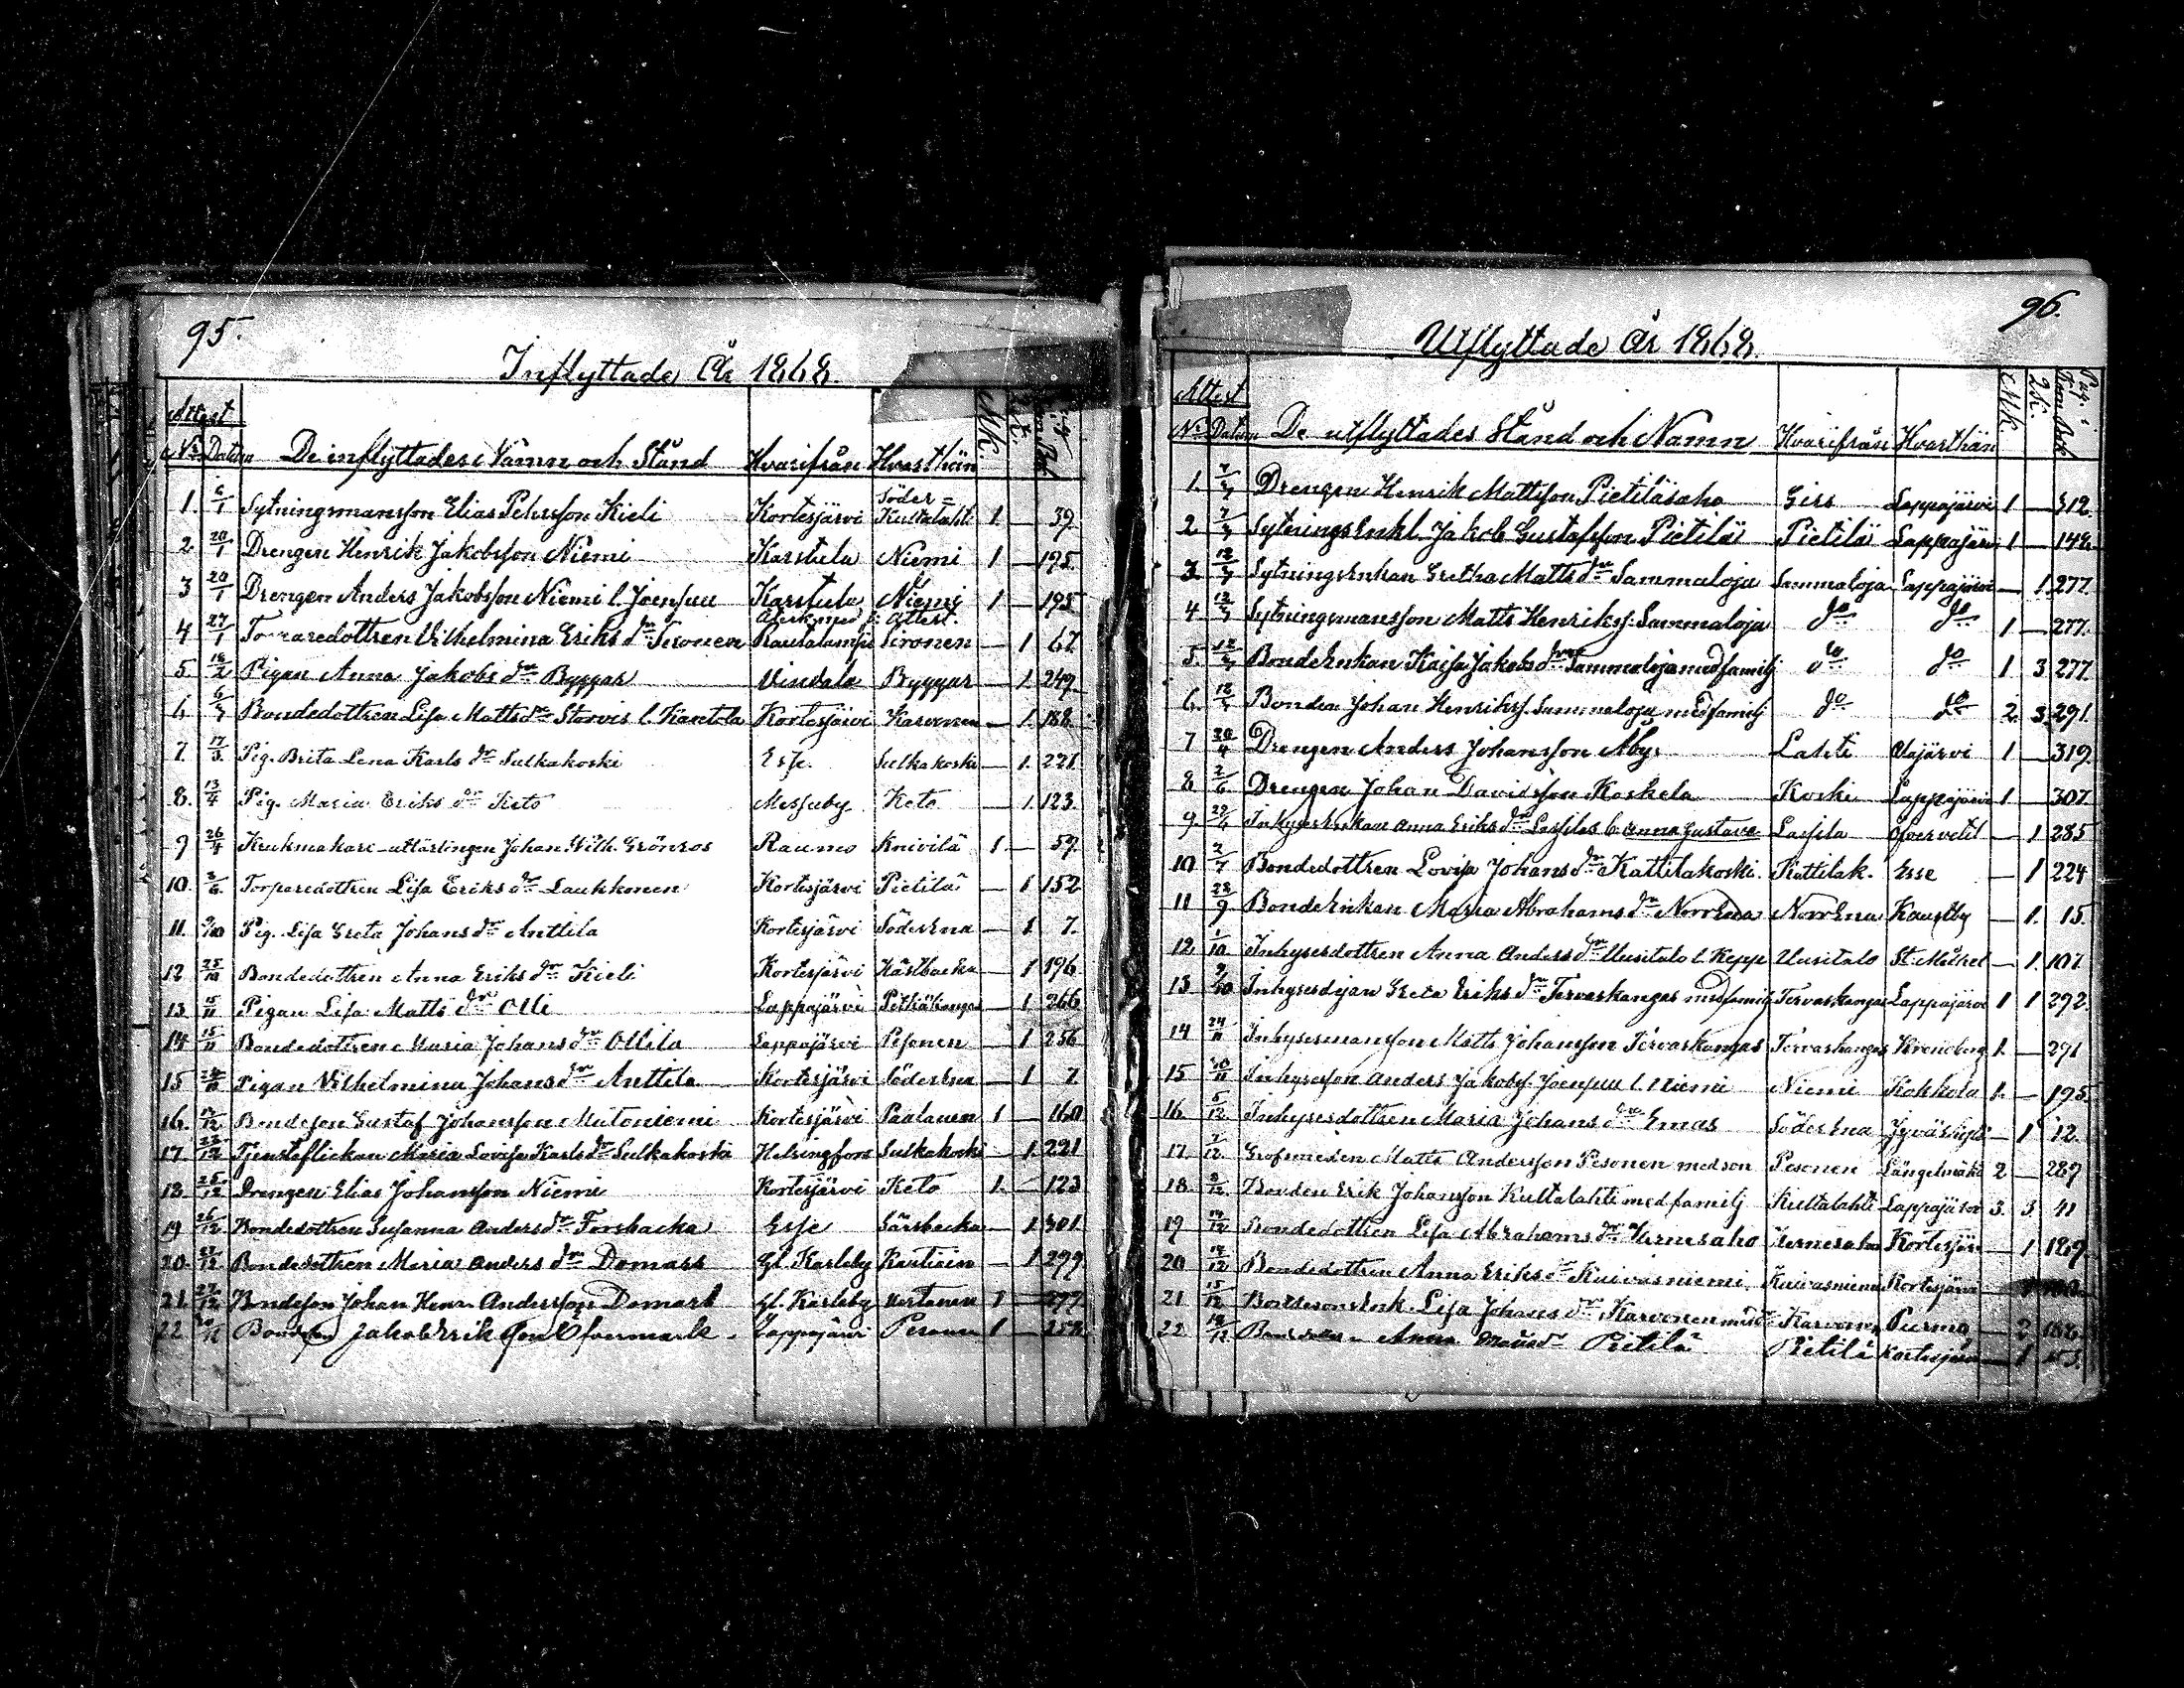 95.
Inflyttade År 1868.
Attest
No Datum De inflyttades Namn och Stånd Hvarifrån Hvarthän M.K.
1. 6/1 Sytningsmansson Elias Pehrsson Kieli Kortesjärvi Söder= Kultalaht 1 — 39
2 20/1 Drengen Henrik Jakobsson Niemi Karstula Niemi 1 — 195
3 20/1 Drengen Anders Jakobsson Niemi l. Joensuu Karstula Niemi 1 — 195
4 27/1 Torparedottren Vilhelmina Eriks dr Sironen Rautalampi Sironen — 1 67
5. 18/2 Pigan Anna Jakobs dr Byggar Vindala Byggar — 1 249
6 Bondedottren Lisa Matts dr Storvis l. Kantola Kortesjärvi Karvonen — 1. 188.
7. 17/3 Pig. Brita Lena Karls dr Sulkakoski Esse Sulkakoski — 1. 221
8. 13/4 Pig. Maria Eriks dr Keto Messuby Keto — 1. 123
9 26/4 Krukmakare-utlärlingen Johan Wilh. Grönros Raumo Knivilä 1 — 59
10. 3/6 Torparedottren Lisa Eriks dr Laukkonen Kortesjärvi Pietilä 1 152
11. 9/10 Pig. Lisa Greta Johans dr Anttila Kortesjärvi SöderEna — 1 7.
12 25/10 Bondedottren Anna Eriks dr Kieli Kortesjärvi Kåstbacka — 1 196
13 15/11 Pigan Lisa Matts dr Olli Lappajärvi Pitkäkangas — 1 266
14 15/11 Bondedottren Maria Johans dr Ollila Lappajärvi Pesonen — 1 256
15 Pigan Vilhelmina Johans dr Anttila Kortesjärvi SöderEna — 1 7
16. Bondeson Gustaf Johansson Matoniemi Kortesjärvi Paalanen 1 — 160
17 Tjensteflickan Maria Lovisa Karls dr Sulkakoski Helsingfors Sulkakoski — 1. 221
18. 25/12 Drengen Elias Johansson Niemi Kortesjärvi Keto 1. — 123
19 26/12 Bondedottren Susanna Anders dr Forsbacka Esse Särsbacka — 1 301
20. Bondedottren Maria Anders dr Domars Gl. Karleby — 1 299
21. 27/12 Bondeson Johan Henr. Andersson Domars Gl. Karleby 1 — 277
22 Jakob Erik Lappajärvi Pesonen 1 —
96.
Utflyttade År 1868.
Attest
No Datum De utflyttades Stånd och Namn Hvarifrån Hvarthän M.K. Q.K. Pag. i Kom. Bok
1. Drengen Henrik Mattsson Pietiläsaho Girs Lappajärvi 1 — 312.
2 Sytningsenkl. Jakob Gustafsson Pietilä Pietilä Lappajärvi 1 — 148
3. Sytningsenkan Gretha Matts dr Sammaloja Sammaloja Lappajärvi — 1. 277.
4 Sytningsmansson Matts Henrikss. Sammaloja do do 1 — 277.
5. Bondeenkan Kaisa Jakobs dr Sammaloja med familj do do 1 3 277.
6. Bonden Johan Henrikss. Sammaloja med familj do do 2. 3. 291.
7 30/4 Drengen Anders Johansson Åby Lahti Alajärvi 1 — 319.
8 2/6 Drengen Johan Davidsson Koskela Koski Lappajärvi 1 — 307.
9. Inhysesenkan Anna Eriks dr Lassila Anna Gustava Lassila Öfvervetil — 1 285
10 2/7 Bondedottren Lovisa Johans dr Kattilakoski Kattilak. Esse — 1 224
11 28/9 Bondeenkan Maria Abrahams dr NorrEna NorrEna Kaustby — 1. 15.
12. 1/10 Inhysesdottren Anna Anders dr Uusitalo l. Keppo Uusitalo St. Michel — 1. 107.
13 9/10 Inhysespigan Greta Eriks dr Tervaskangas med familj Tervaskangas Lappajärvi 1 1 292.
14 24/11 Inhysesmansson Matts Johansson Tervaskangas Tervaskangas Kronoborg 1. — 291
15 30/11 Inhyseson Anders Jakobs. Joensuu l. Niemi Niemi Kokkola 1. — 195.
16. 5/12 Inhysesdottren Maria Johans dr Emas SöderEna Jyväskylä — 1 12.
17. 7/12 Grofsmeden Matts Andersson Pesonen med son Pesonen Längelmäki 2 — 289
18. 8/12 Bonden Erik Johansson Kultalahti med familj Kultalahti Lappajärvi 3. 3 41
19 14/12 Bondedottren Lisa Abrahams dr Hernesaho Hernesaho Kortesjärvi — 1 189.
20 14/12 Bondedottren Anna Eriks dr Kuivasniemi Kuivasniemi Kortesjärvi
21 15/12 Bondesonsenk. Lisa Johans dr Karvonen Karvonen Purmo — 2 188.
22. Anna Matts dr Pietilä Pietilä Kortesjärvi — 1